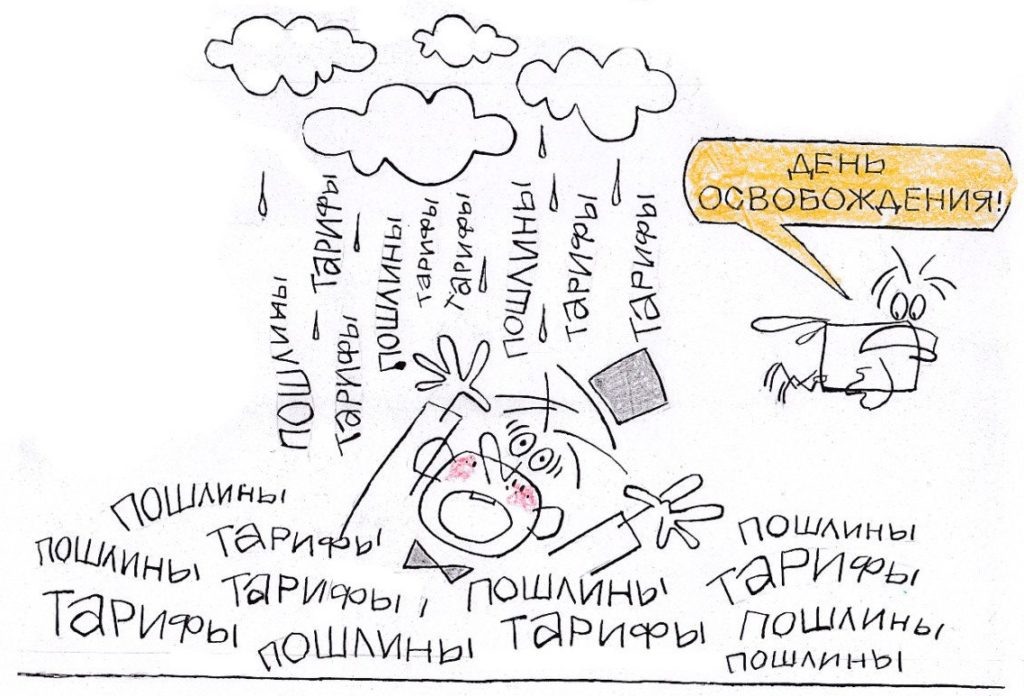 ДЕНЬ
ОСВОБОЖДЕНИЯ!
ПОШЛИНЫ
ТАРИФЫ
ТАРИФЫ
ПОШЛИНЫ
ТАРИФЫ
ТАРИФЫ
ПОШЛИНЫ
ТАРИФЫ
ТАРИФЫ
ПОШЛИНЫ
ТАРИФЫ
ПОШЛИНЫ
ПОШЛИНЫ
ТАРИФЫ
ПОШЛИНЫ
ТАРИФЫ
ТАРИФЫ
ПОШЛИНЫ
ТАРИФЫ
ПОШЛИНЫ
ПОШЛИНЫ